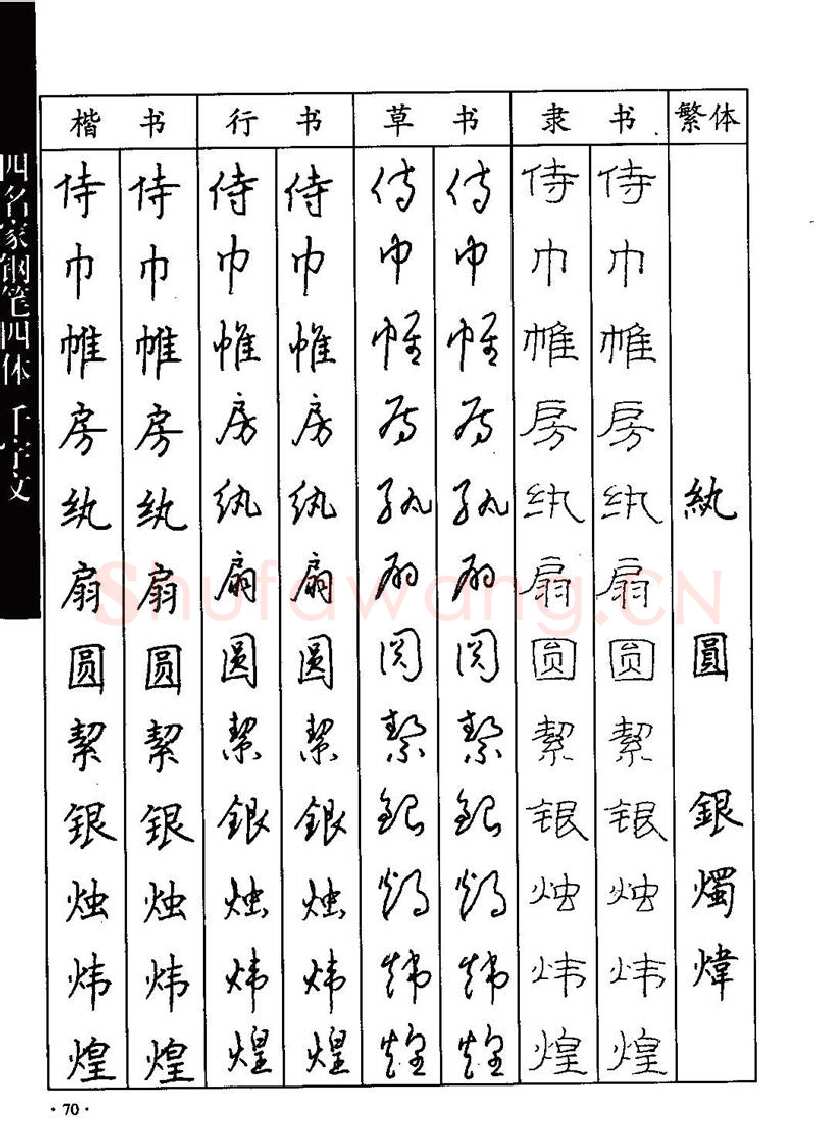 四名家钢笔四体 千字文
楷书 行书 草书 隶书 繁体
侍 侍 侍 侍 侍 侍 侍 侍
巾 巾 巾 巾 巾 巾 巾 巾
帷 帷 帷 帷 帷 帷 帷 帷
房 房 房 房 房 房 房 房
纨 纨 纨 纨 纨 纨 纨 纨 紈
扇 扇 扇 扇 扇 扇 扇 扇
圆 圆 圆 圆 圆 圆 圆 圆 圓
絜 絜 絜 絜 絜 絜 絜 絜
银 银 银 银 银 银 银 银 銀
烛 烛 烛 烛 烛 烛 烛 烛 燭
炜 炜 炜 炜 炜 炜 炜 炜 煒
煌 煌 煌 煌 煌 煌 煌 煌
Shufawang.CN
·70·